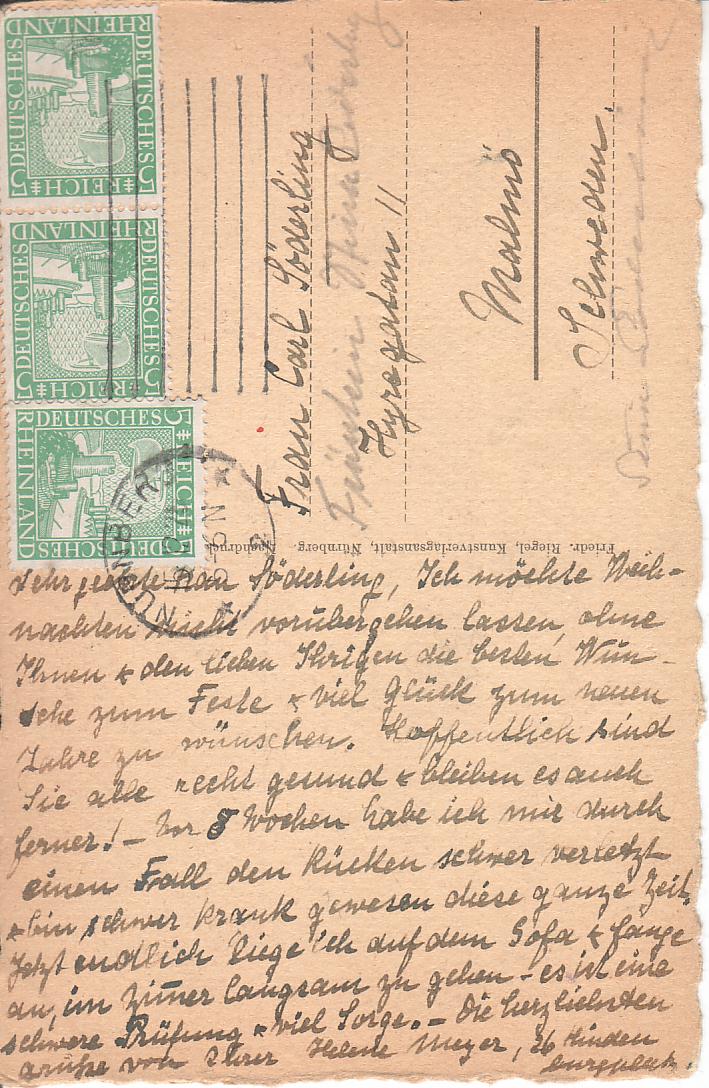 DEUTSCHES REICH
RHEINLAND
5 5
DEUTSCHES REICH
RHEINLAND
5 5
DEUTSCHES REICH
RHEINLAND
5 5
NÜRNBERG
Frau Carl Söderling
Fräulein
Malmö
Schweden.
Friedr. Riegel, Kunstverlagsanstalt, Nürnberg.
Sehr geehrte Frau Söderling, Ich möchte Weih-
nachten nicht vorübergehen lassen, ohne
Ihnen & den lieben Ihrigen die besten Wün-
sche zum Feste & viel Glück zum neuen
Jahre zu wünschen. Hoffentlich sind
Sie alle recht gesund & bleiben es auch
ferner! – Vor 8 Wochen habe ich mir durch
einen Fall den Rücken schwer verletzt
& bin schwer krank gewesen diese ganze Zeit.
Jetzt endlich liege ich auf dem Sofa & fange
an, im Zimer langsam zu gehen – es ist eine
schwere Prüfung & viel Sorge. – Die herzlichsten
Grüße von Ihrer Helene Meyer, 26 Hinden
burgplatz.